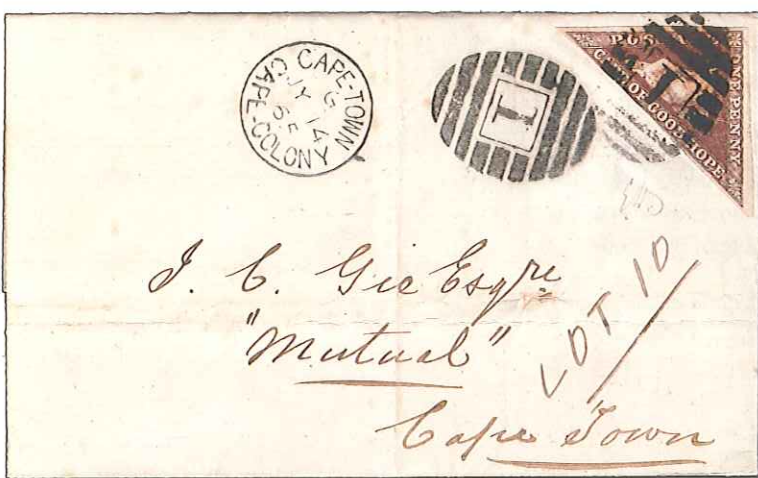 CAPE-TOWN
G
JY 14
65
CAPE-COLONY
1
POS
ONE PENNY
CAPE OF GOOD HOPE
1
J. C. Gie Esqre
"Mutual"
Cape Town
LOT 10